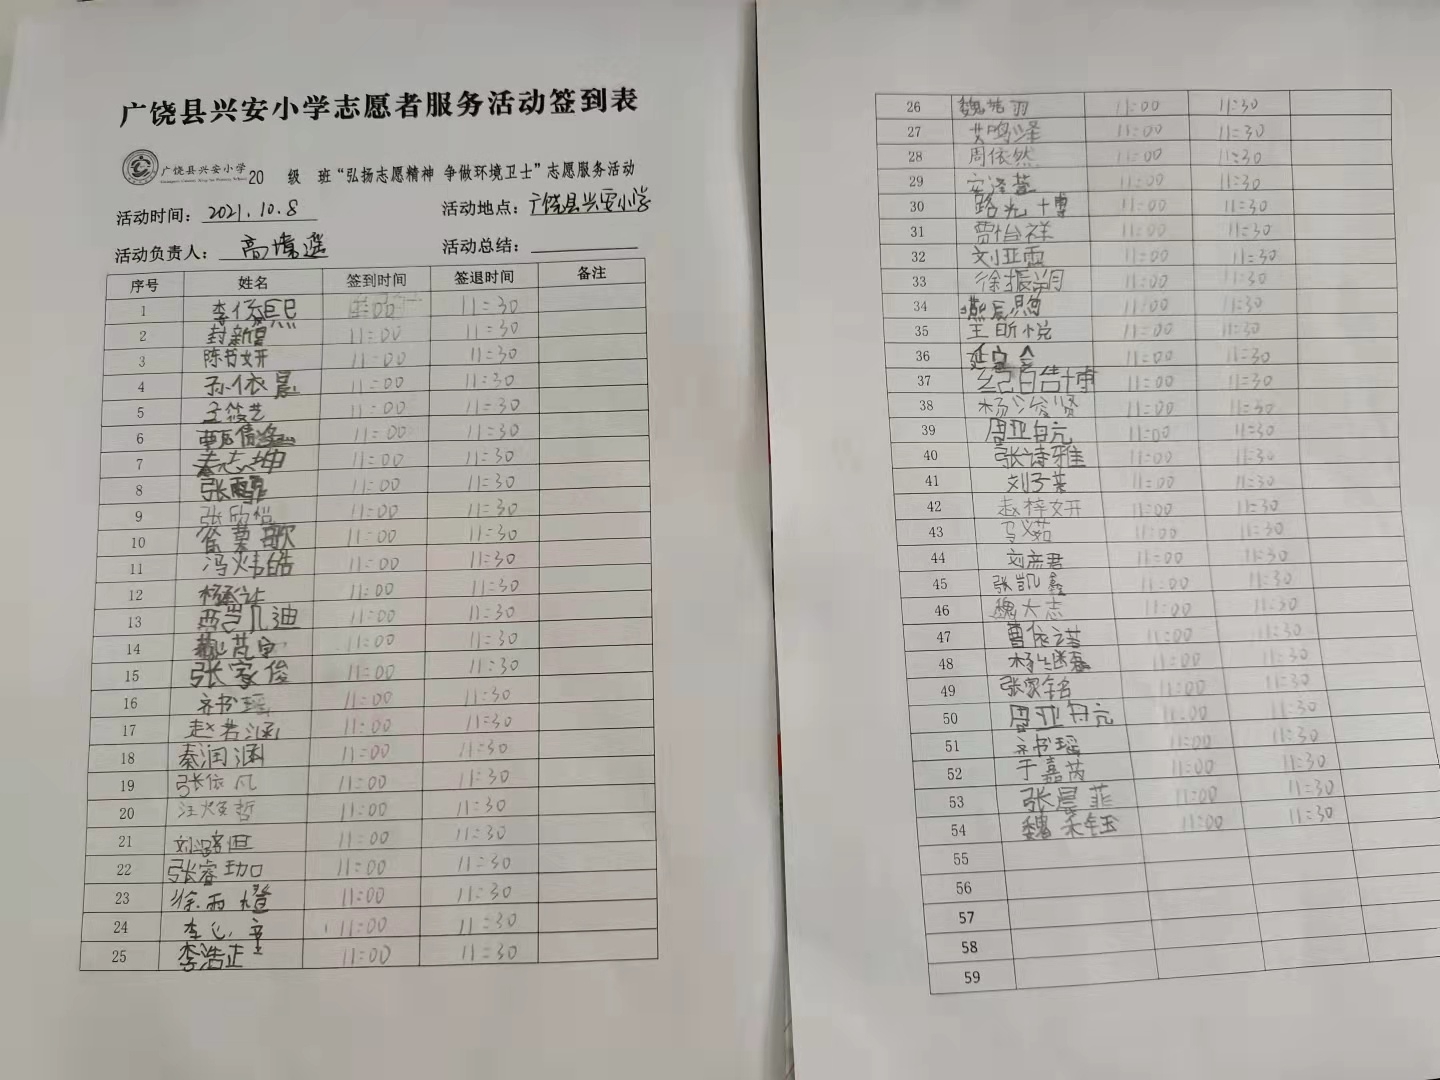 广饶县兴安小学志愿者服务活动签到表
广饶县兴安小学 20 级 班“弘扬志愿精神 争做环境卫士”志愿服务活动
活动时间：2021.10.8 活动地点：广饶县兴安小学
活动负责人：高 活动总结：
序号 姓名 签到时间 签退时间 备注
1 李依 11:30
2 封新 11:00 11:30
3 陈 妍 11:00 11:30
4 孙依晨 11:00 11:30
5 孟筱艺 11:00 11:30
6 11:00 11:30
7 秦志坤 11:00 11:30
8 张 11:00 11:30
9 张欣怡 11:00 11:30
10 慕歌 11:00 11:30
11 冯炜皓 11:00 11:30
12 杨 11:00 11:30
13 凯迪 11:00 11:30
14 11:00 11:30
15 张家俊 11:00 11:30
16 齐书瑶 11:00 11:30
17 赵若涵 11:00 11:30
18 秦润涵 11:00 11:30
19 张依凡 11:00 11:30
20 汪 哲 11:00 11:30
21 刘 恒 11:00 11:30
22 张睿 11:00 11:30
23 徐雨橙 11:00 11:30
24 李心 11:00 11:30
25 李浩正 11:00 11:30
26 魏 羽 11:00 11:30
27 鸣泽 11:00 11:30
28 周依然 11:00 11:30
29 安泽萱 11:00 11:30
30 路光博 11:00 11:30
31 贾怡祥 11:00 11:30
32 刘亚雨 11:00 11:30
33 徐振 11:00 11:30
34 燕辰 11:00 11:30
35 王昕悦 11:00 11:30
36 延 11:00 11:30
37 纪皓博 11:00 11:30
38 杨浚贤 11:00 11:30
39 周亚 11:00 11:30
40 张诗雅 11:00 11:30
41 刘子英 11:00 11:30
42 赵梓妍 11:00 11:30
43 义茹 11:00 11:30
44 刘彦君 11:00 11:30
45 张凯鑫 11:00 11:30
46 魏大志 11:00 11:30
47 曹依诺 11:00 11:30
48 杨继 11:00 11:30
49 张家铭 11:00 11:30
50 周亚 11:00 11:30
51 齐书瑶 11:00 11:30
52 于嘉芮 11:00 11:30
53 张晨菲 11:00 11:30
54 魏 钰 11:00 11:30
55
56
57
58
59